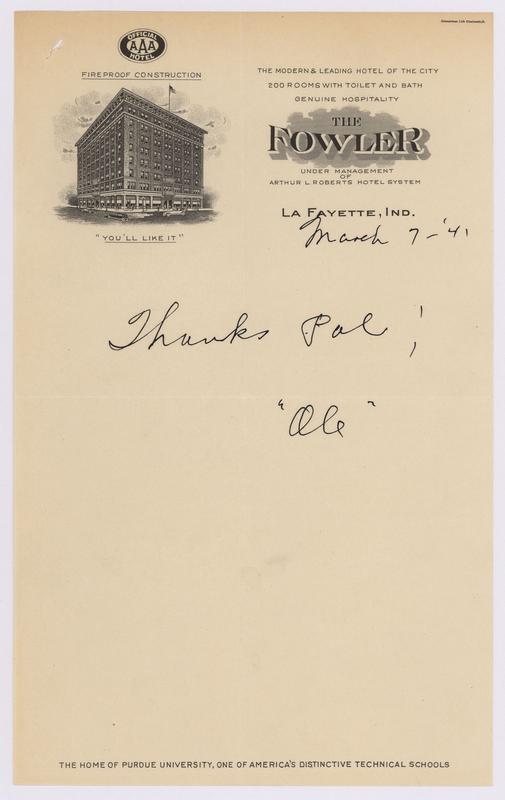 OFFICIAL
AAA
HOTEL
FIREPROOF CONSTRUCTION
"YOU'LL LIKE IT"
THE MODERN & LEADING HOTEL OF THE CITY
200 ROOMS WITH TOILET AND BATH
GENUINE HOSPITALITY
THE
FOWLER
UNDER MANAGEMENT
OF
ARTHUR L. ROBERTS HOTEL SYSTEM
LA FAYETTE, IND.
March 7 - '41
Thanks Pal!
"Ole"
THE HOME OF PURDUE UNIVERSITY, ONE OF AMERICA'S DISTINCTIVE TECHNICAL SCHOOLS